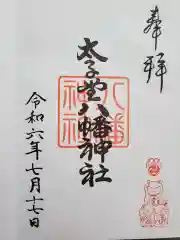 奉拝
太子堂八幡神社
八幡
神社
令和六年七月十七日